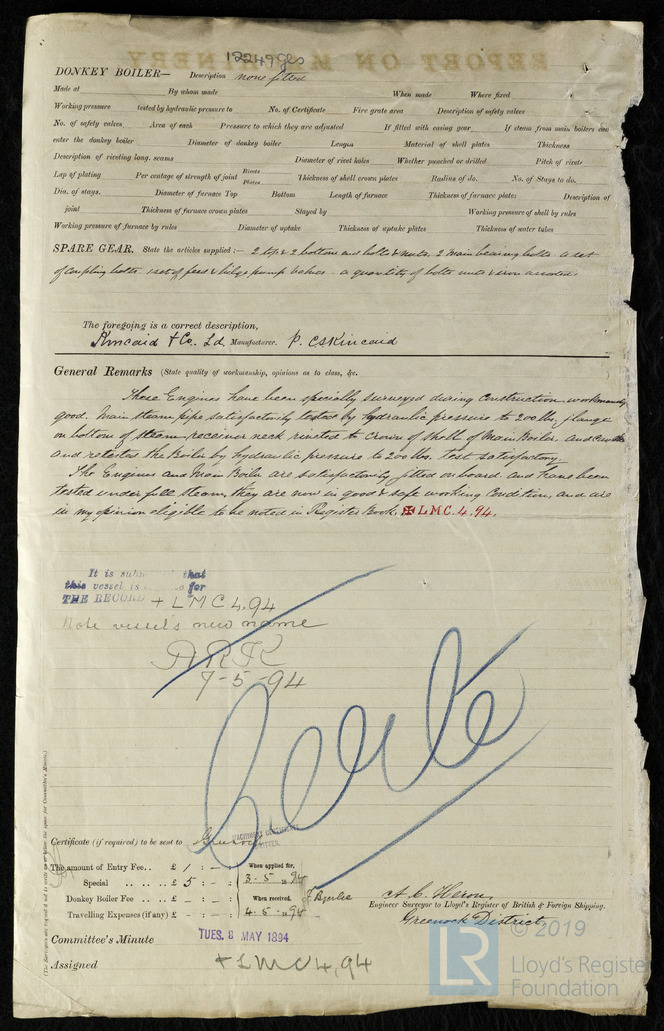 REPORT ON MACHINERY
12249 Gls
DONKEY BOILER— Description none fitted
Made at By whom made When made Where fixed
Working pressure tested by hydraulic pressure to No. of Certificate Fire grate area Description of safety valves
No. of safety valves Area of each Pressure to which they are adjusted If fitted with easing gear If steam from main boilers can
enter the donkey boiler Diameter of donkey boiler Length Material of shell plates Thickness
Description of riveting long. seams Diameter of rivet holes Whether punched or drilled Pitch of rivets
Lap of plating Per centage of strength of joint Rivets Plates Thickness of shell crown plates Radius of do. No. of Stays to do.
Dia. of stays. Diameter of furnace Top Bottom Length of furnace Thickness of furnace plates Description of
joint Thickness of furnace crown plates Stayed by Working pressure of shell by rules
Working pressure of furnace by rules Diameter of uptake Thickness of uptake plates Thickness of water tubes
SPARE GEAR. State the articles supplied:— 2 top & 2 bottom end bolts & nuts. 2 main bearing bolts. a set
of coupling bolts. 1 set of feed & bilge pump valves. a quantity of bolts nuts & iron assorted.
The foregoing is a correct description,
Kincaid & Co. Ld Manufacturer. P. CSKincaid
General Remarks (State quality of workmanship, opinions as to class, &c.
These Engines have been specially surveyed during Construction workmanship
good. Main steam pipe satisfactorily tested by hydraulic pressure to 200 lbs, flange
on bottom of steam receiver neck riveted to Crown of Shell of Main Boiler. and
and retested the Boiler by hydraulic pressure to 200 lbs. Test satisfactory.
The Engines and Main Boiler are satisfactorily fitted on board. and have been
tested under full steam, they are now in good & safe working Condition, and are
in my opinion eligible to be noted in Register Book. ✠ LMC. 4. 94.
It is submitted that
this vessel is for
THE RECORD + LMC 4,94
Note vessel's new name
ARK
7-5-94
Certificate (if required) to be sent to Greenock
The amount of Entry Fee.. £ 1 : - : - When applied for,
Special .. .. .. £ 5 : - : - 3.5.1894
Donkey Boiler Fee .. .. £ - : - : When received,
Travelling Expenses (if any) £ - : - : 4.5.1894
A. C. Heron
Engineer Surveyor to Lloyd's Register of British & Foreign Shipping.
Greenock District.
Committee's Minute TUES. 8 MAY 1894
Assigned + LMC 4,94
© 2019
LR
Lloyd's Register
Foundation